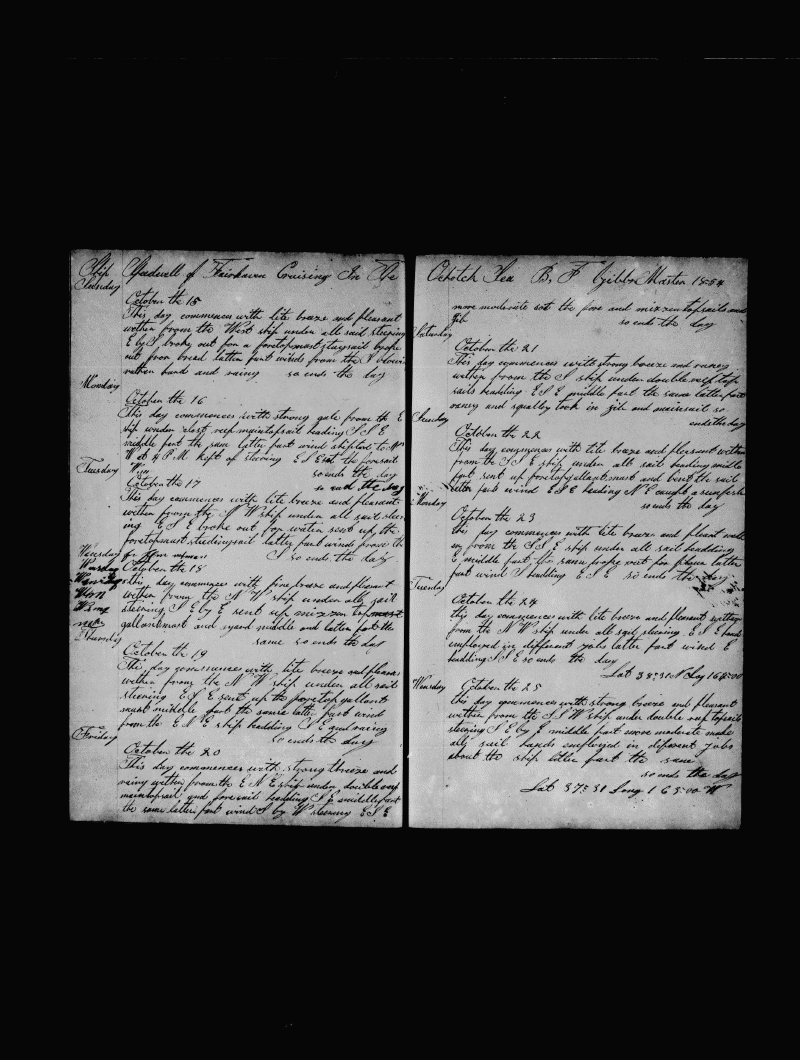 Ship Speedwell of Fairhaven Cruising In The
Sunday
October the 15
This day commences with lite breaze and pleasant
wether from the West ship under all sail steering
E by S broke out for a foretopmaststaysail broke
out for bread latter part winds from the S blowin
rather hard and rainy so ends the day
Monday
October the 16
This day commences with strong gale from the E
ship under close reep maintopsail heading S S E
middle part the same latter part wind shifted to N
W at 4 P M kept of steering E S E set the foresail
so ends the day
Tuesday
October the 17
so ends the day
This day commences with lite breaze and pleasant
wether from the N W ship under all sail steer
ing E S E broke out for water sent up the
foretopmast studingsail latter part winds from the
S so ends the day
Wensday
October the 18
this day commences with fine breaze and pleasant
wether from the N W ship under all sail
steering S E by E sent up mizzen topmast
gallantmast and yard middle and latter part the
same so ends the day
Thursday
October the 19
This day commences with lite breaze and pleasant
wether from the N W ship under all sail
steering E S E sent up the foretopgallant
mast middle part the same latter part wind
from the E N E ship headding S E and rainy
so ends the day
Friday
October the 20
This day commences with strong breaze and
rainy wether from the E N E ship under double reep
maintopsail and foresail headding S E middle part
the same latter part wind S by W steering E S E
Ochotch Sea B, F Gibbs Master 1854
more moderate set the fore and mizzentopsails and
Jib so ends the day
Saturday
October the 21
This day commences with strong breaze and rainey
wether from the S ship under double reep top
sails headding E S E middle part the same latter part
rainy and squalley took in jib and mainsail so
ends the day
Sunday
October the 22
This day commences with lite breaze and pleasant wether
from the S S E ship under all sail heading middle
part sent up foretopgallantmast and bent the sail
latter part wind E S E heading N E caught a sunfish
so ends the day
Monday
October the 23
this day commences with lite breaze and pleasant weth
er from the S S E ship under all sail headding
E middle part the same broke out for flour latter
part wind S headding E S E so ends the day
Tuesday
October the 24
this day commences with lite breaze and pleasant wether
from the N W ship under all sail steering E S E hands
employed in different jobs latter part wind E
headding S S E so ends the day
Lat 38=31 N Long 168=00
Wensday
October the 25
the day commences with strong breaze and pleasant
wether from the S S W ship under double reep topsails
steering S E by E middle part more moderate made
all sail hands employed in different jobs
about the ship latter part the same
so ends the day
Lat 37=31 Long 165=00 W